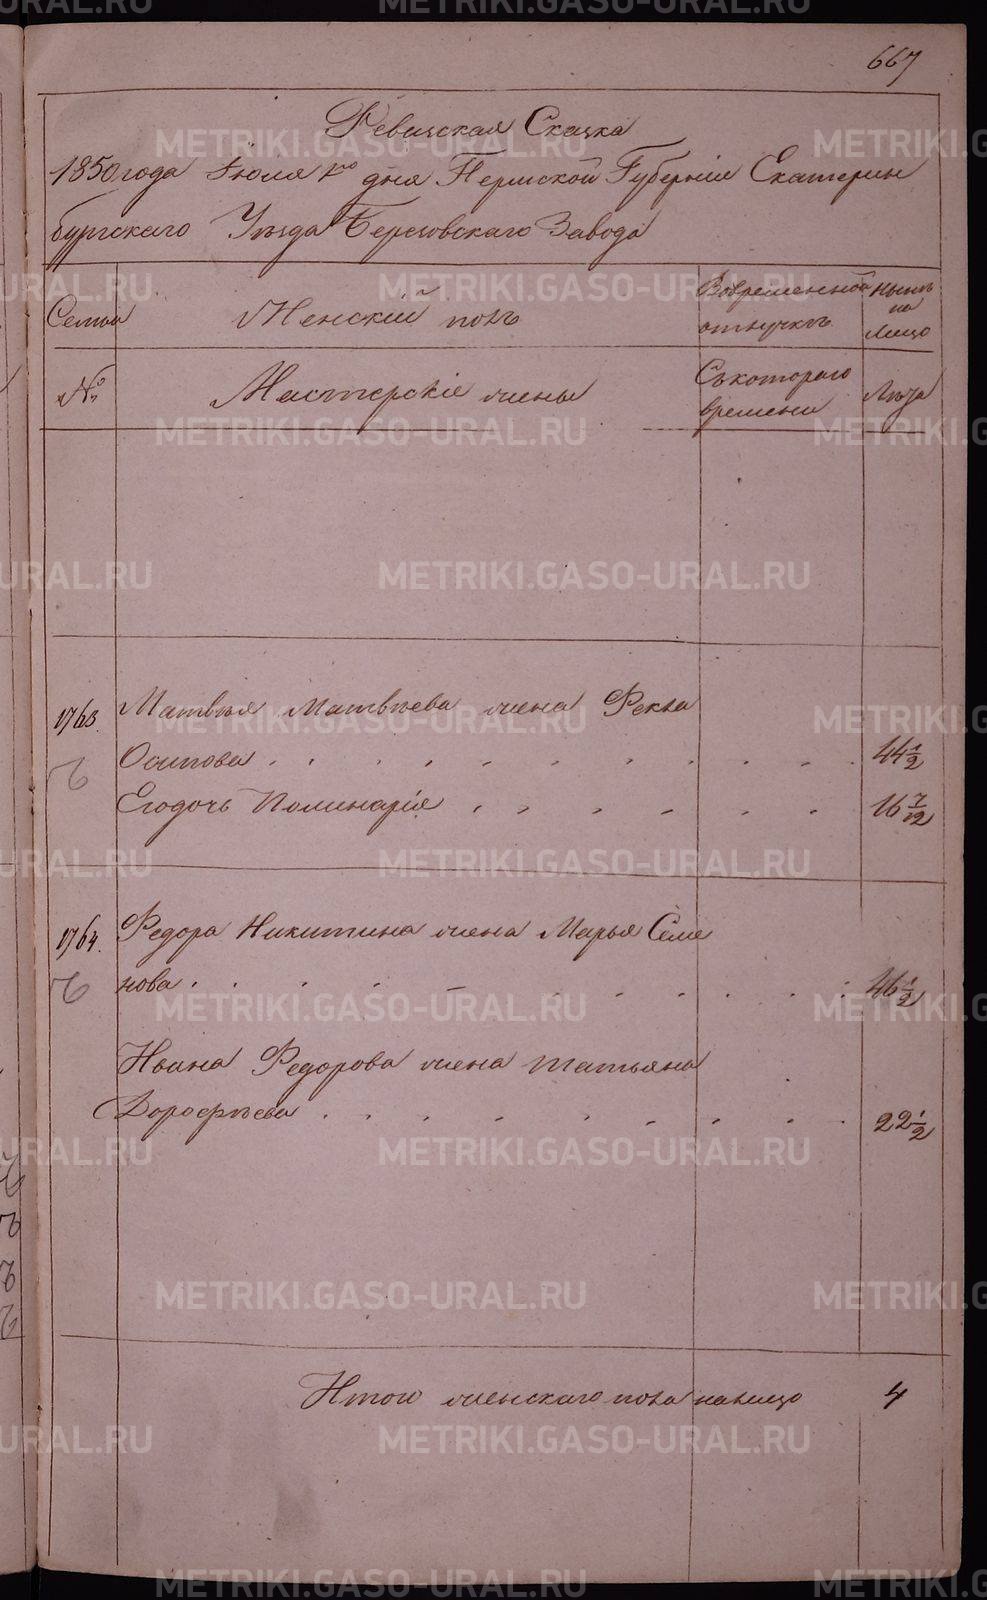 667
Ревизская Сказка
1850 года Июля 1го дня Пермской Губерніи Екатерин
бургскаго Уѣзда Березовскаго Завода
Семьи
Женскій полъ
Вовременной
отлучкѣ
Нынѣ
на
лицо
№
Мастерскіе жены
Съкотораго
времени
Лѣта
1763.
Матвѣя Матвѣева жена Фекла
Осипова 44 1/2
Егодочь Полинарія 16 7/12
1764.
Федора Никитина жена Марья Семе
нова 46 1/2
Ивана Федорова жена Татьяна
Дорофѣева 22 1/2
Итого женскаго пола налицо 4
METRIKI.GASO-URAL.RU